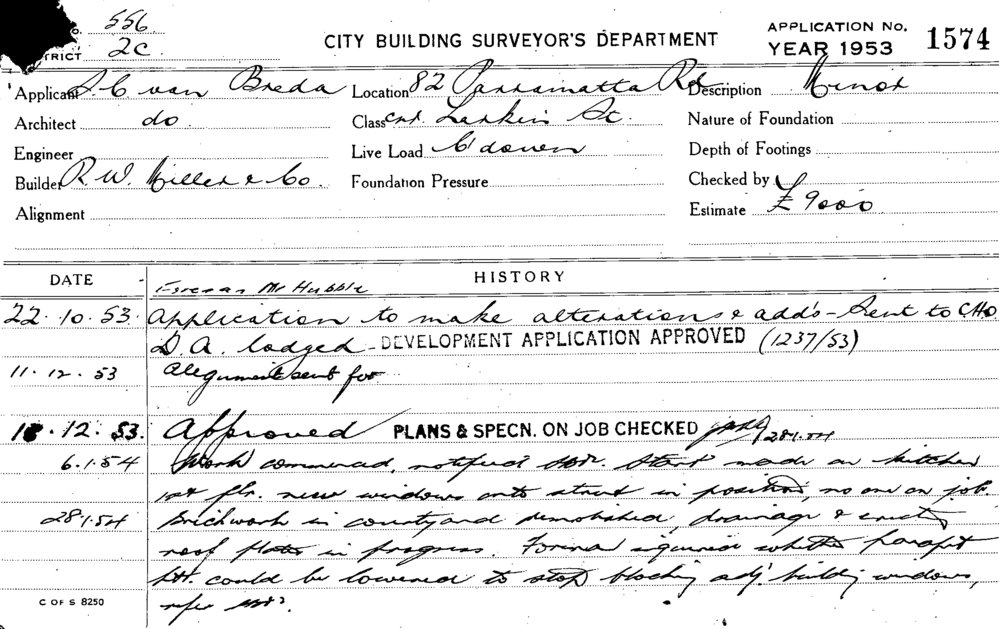 556
2C
TRICT
CITY BUILDING SURVEYOR'S DEPARTMENT
APPLICATION No.
YEAR 1953
1574
Applicant S.C. van Breda
Location 82 Parramatta Rd
Description Minor
Architect do
Class cnr. Larkin St.
Nature of Foundation
Engineer
Live Load C'down
Depth of Footings
Builder R.W. Miller & Co.
Foundation Pressure
Checked by
Alignment
Estimate £9000
DATE
HISTORY
Foreman Mr Hubble
22.10.53. Application to make alterations & add's - Sent to CHO
D.A. lodged - DEVELOPMENT APPLICATION APPROVED (1237/53)
11.12.53 Alignment sent for
12.53. Approved PLANS & SPECN. ON JOB CHECKED 28.1.54
6.1.54 Work commenced, notified start made on kitchen
1st flr. new windows onto street in position, no one on job.
28.1.54 Brickwork in courtyard demolished, drainage &
roof plates in progress. Foreman inquired whether parapet
could be lowered to stop blocking adj. building windows,
refer
C OF S 8250